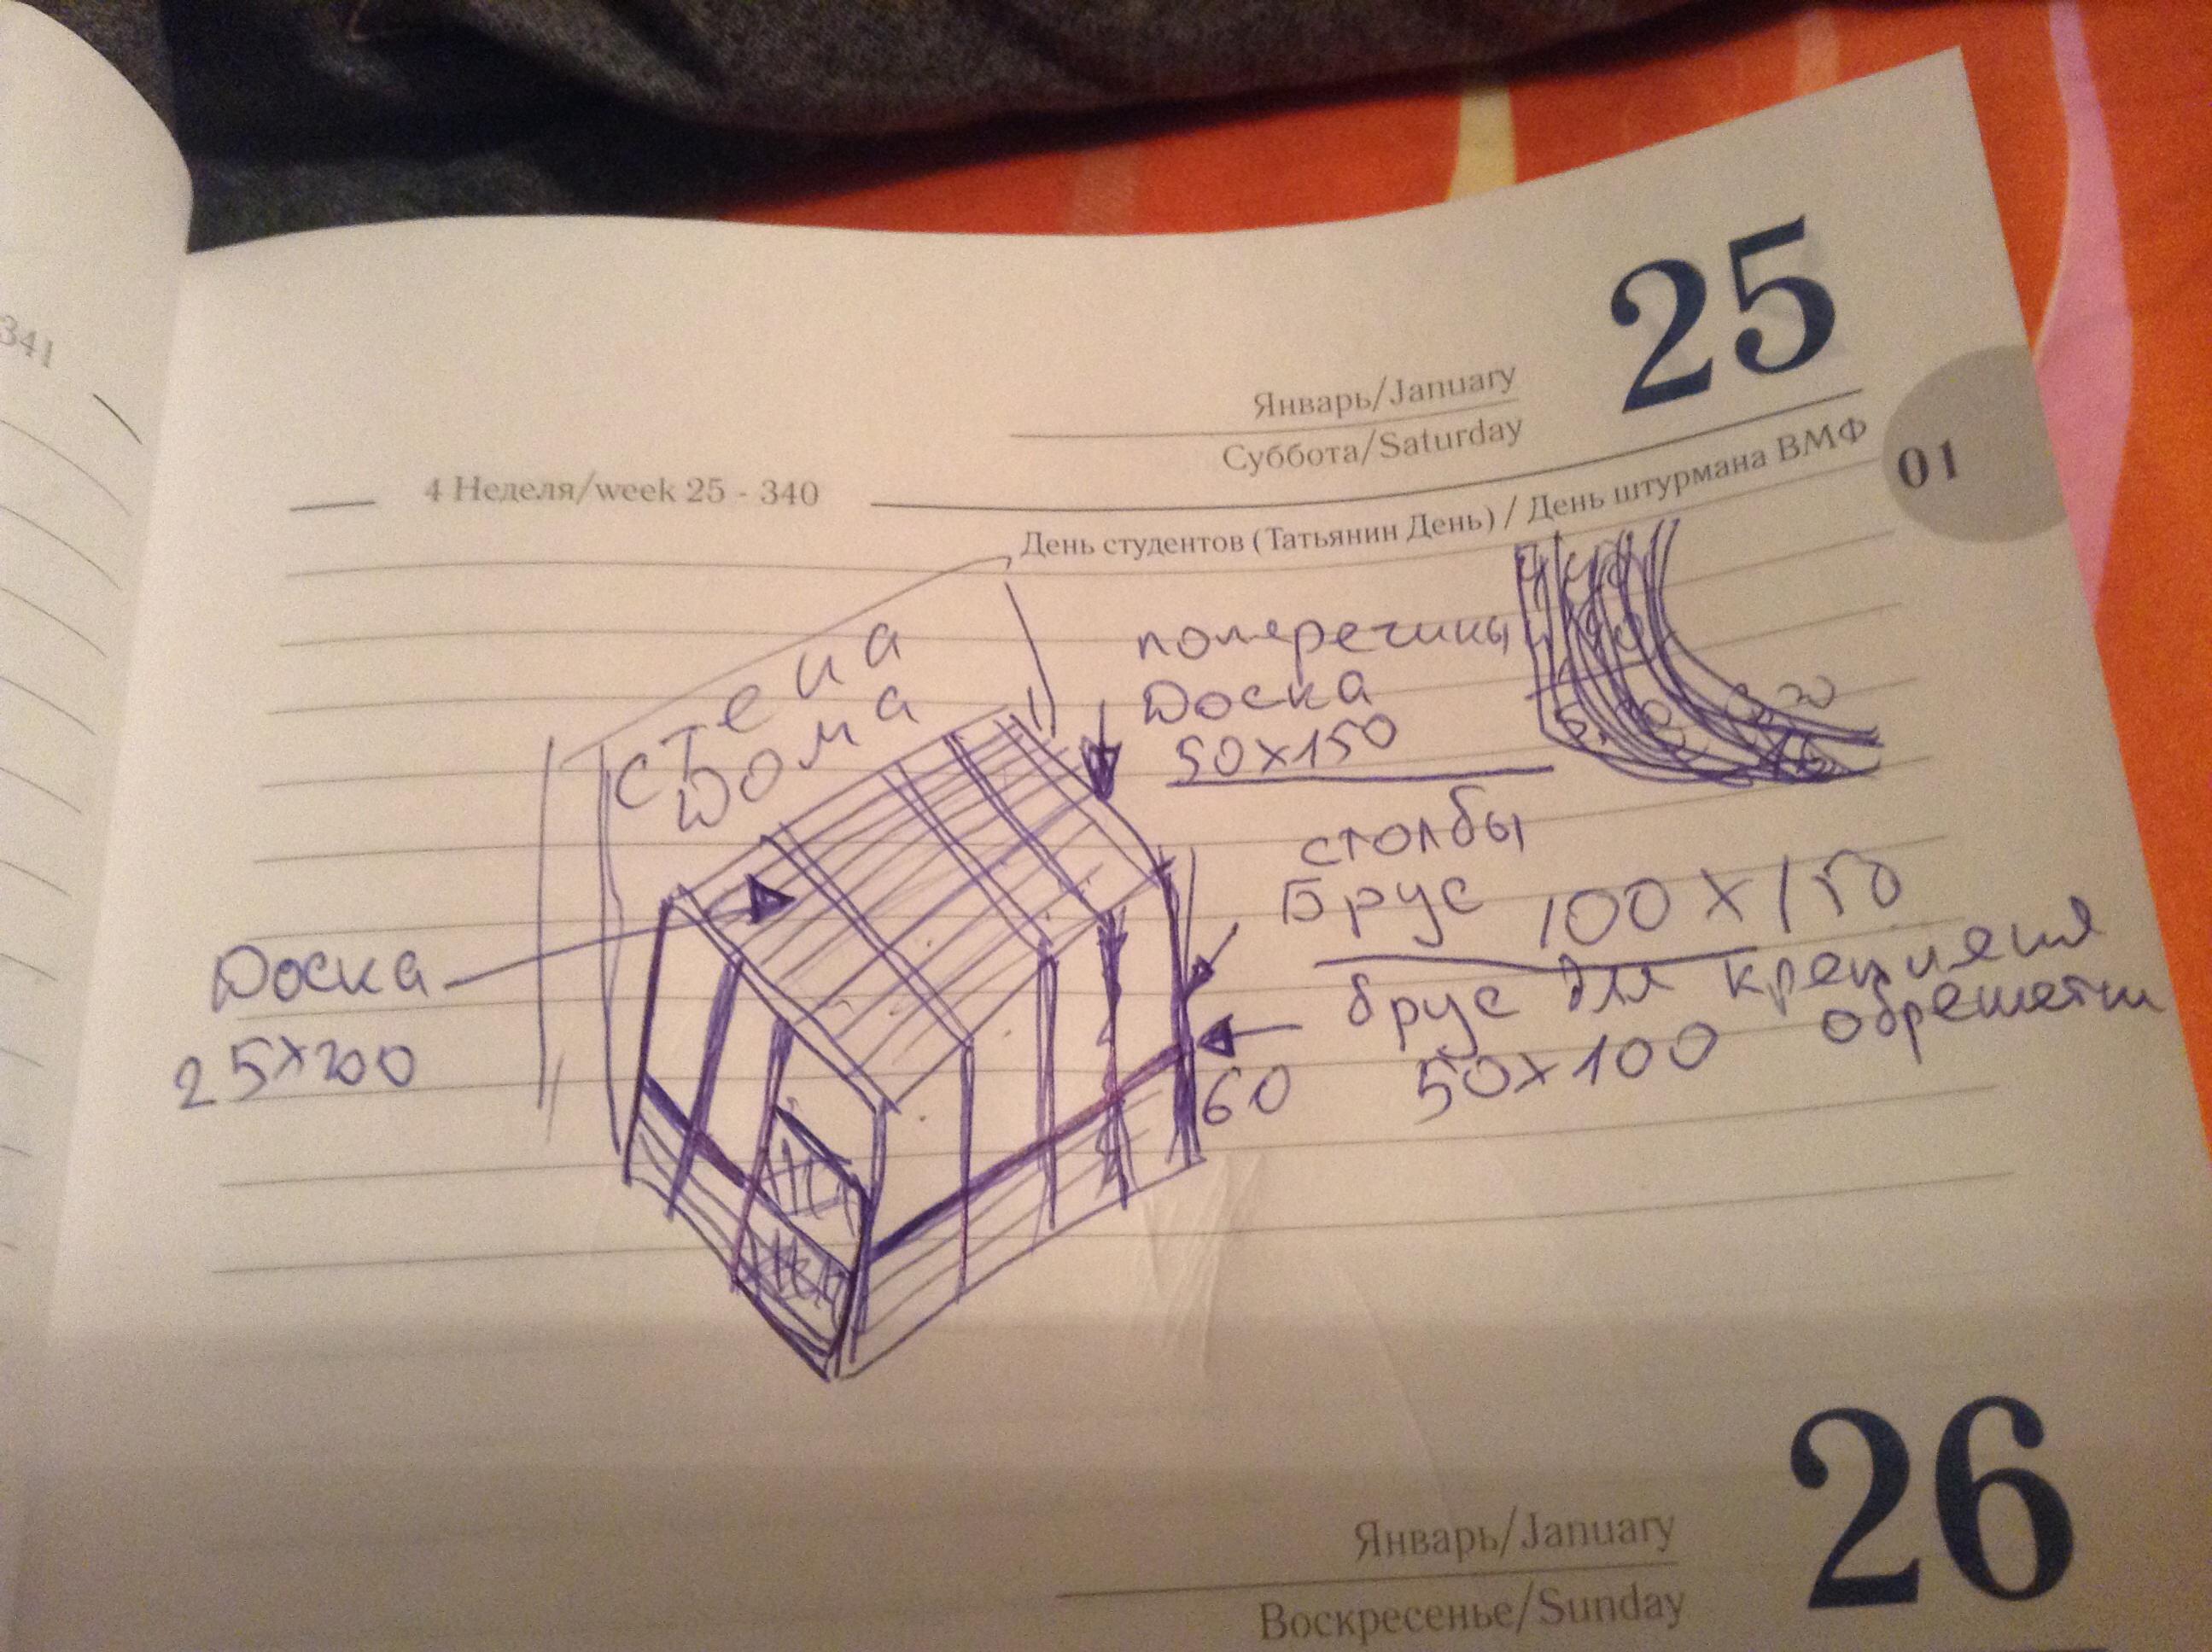 341
25
Январь/January
Суббота/Saturday
4 Неделя/week 25 - 340
01
День студентов (Татьянин День) / День штурмана ВМФ
стена
дома
поперечины
Доска
50х150
столбы
Брус 100 х 150
брус для крепления
обрешетки
50х100
60
Доска
25х200
26
Январь/January
Воскресенье/Sunday